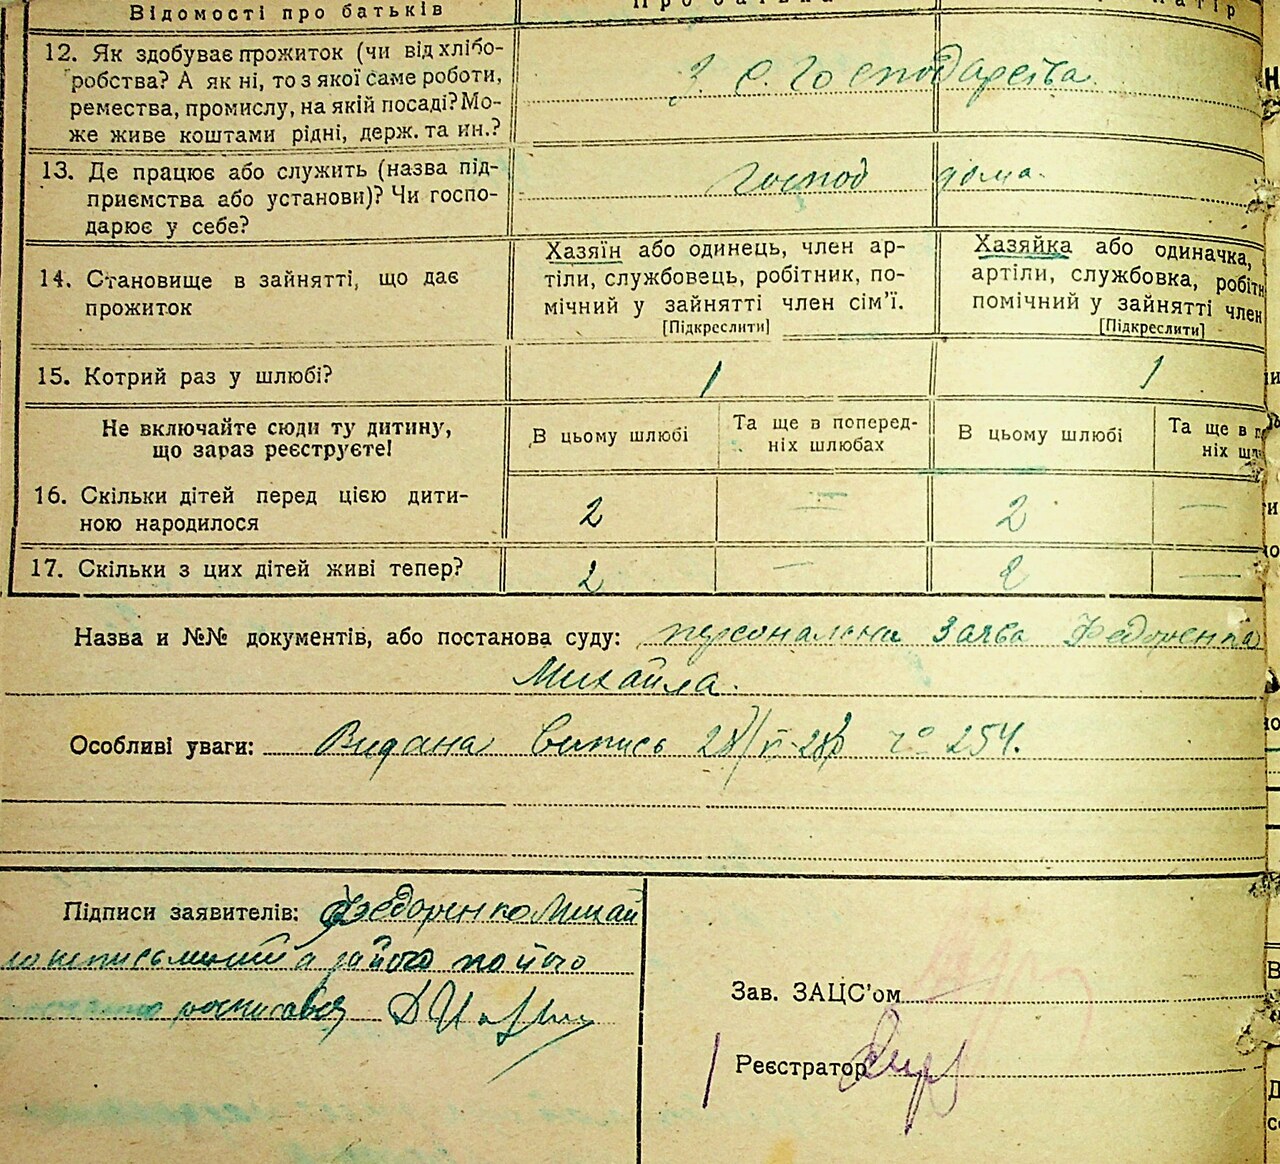 Відомості про батьків
12. Як здобуває прожиток (чи від хлібо-
робства? А як ні, то з якої саме роботи,
ремества, промислу, на якій посаді? Мо-
же живе коштами рідні, держ. та ин.?
З С. Господарства
13. Де працює або служить (назва під-
приємства або установи)? Чи госпо-
дарює у себе?
Господ дома.
14. Становище в зайнятті, що дає
прожиток
Хазяїн або одинець, член ар-
тіли, службовець, робітник, по-
мічний у зайнятті член сім'ї.
[Підкреслити]
Хазяйка або одиначка,
артіли, службовка, робітн
помічний у зайнятті член
[Підкреслити]
15. Котрий раз у шлюбі?
1
1
Не включайте сюди ту дитину,
що зараз реєструєте!
В цьому шлюбі
Та ще в поперед-
ніх шлюбах
В цьому шлюбі
Та ще в по
ніх шл
16. Скільки дітей перед цією дити-
ною народилося
2
—
2
—
17. Скільки з цих дітей живі тепер?
2
—
2
—
Назва и №№ документів, або постанова суду: персональна Заява Федоренка
Михайла.
Особливі уваги: Видана Випись № 254.
Підписи заявителів: Федоренко Михай
ло неписьменний а за його по його
росписався
Зав. ЗАЦС'ом
Реєстратор